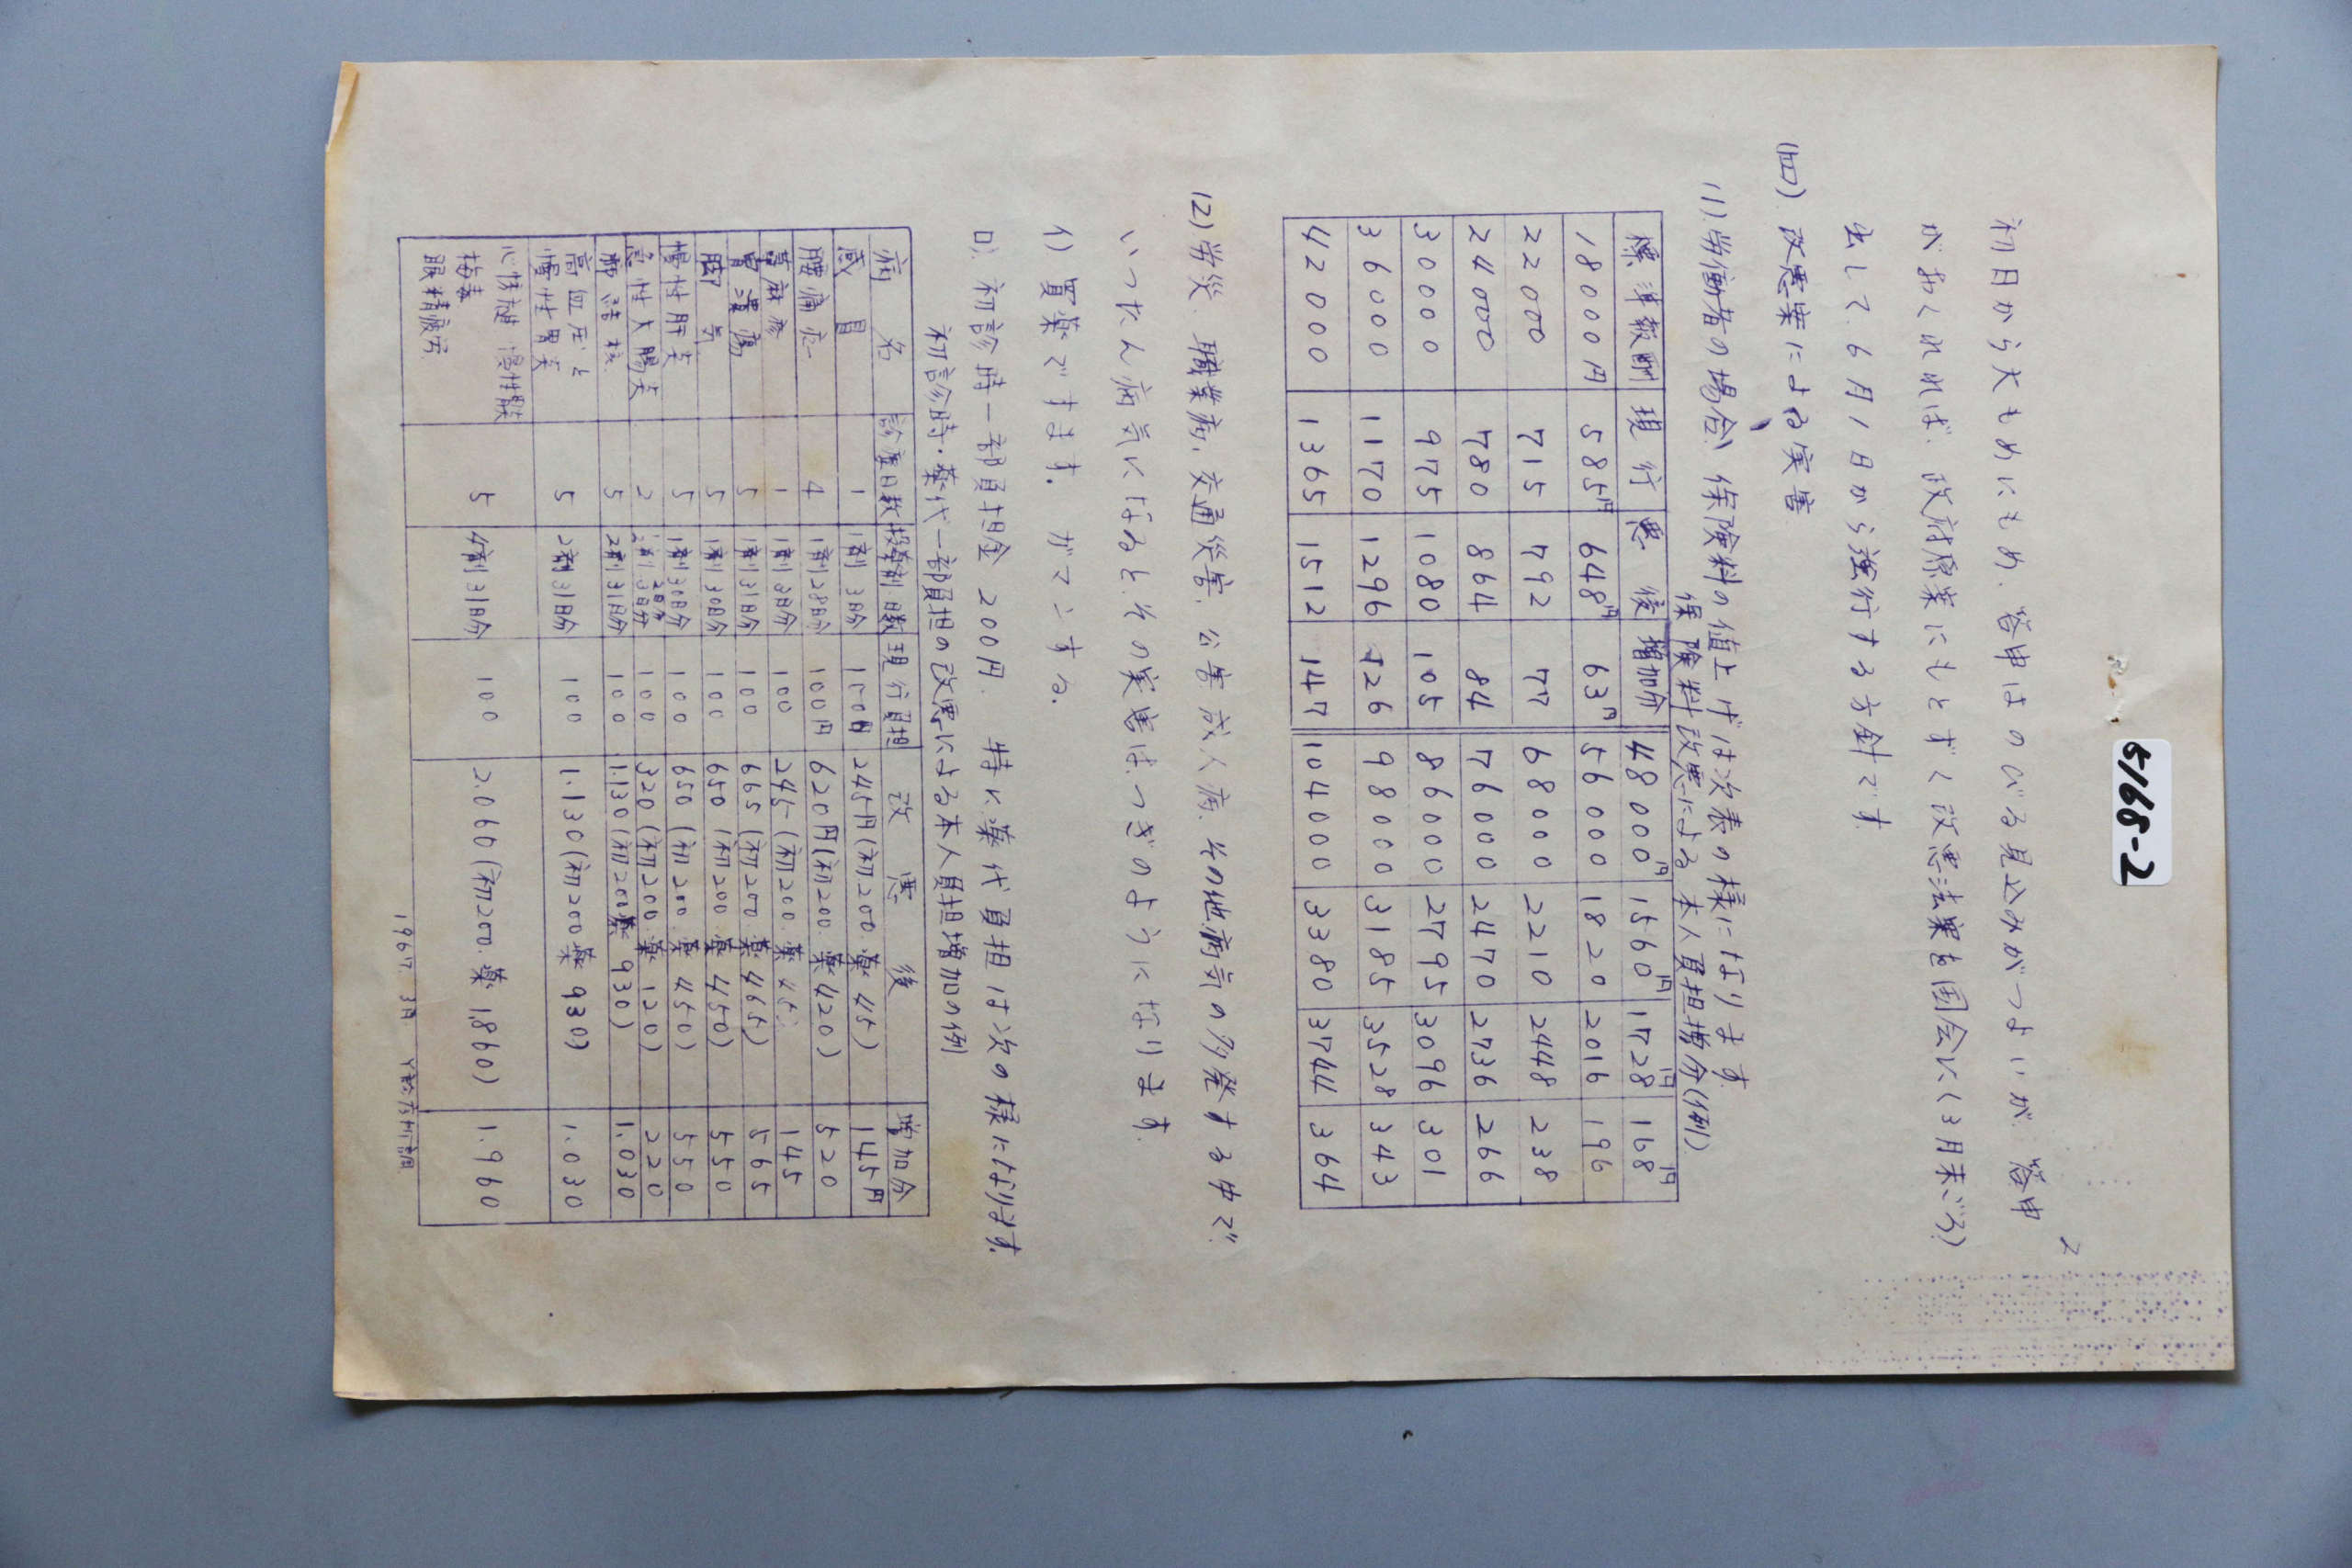 5168-2
2
初日から大もめにもめ、答申はのびる見込みがつよいが、答申
がおくれれば、政府原案にもとずく改悪法案を国会に(3月末ごろ)
出して、6月1日から強行する方針です
(四) 改悪案による実害
(1) 労働者の場合、保険料の値上げは次表の様になります
保険料改悪による本人負担増分(例)
標準報酬 現行 悪後 増加分 48000円 1560円 1728円 168円
18000円 585円 648円 63円 56000 1820 2016 196
22000 715 792 77 68000 2210 2448 238
24000 780 864 84 76000 2470 2736 266
30000 975 1080 105 86000 2795 3096 301
36000 1170 1296 126 98000 3185 3528 343
42000 1365 1512 147 104000 3380 3744 364
(2) 労災、職業病、交通災害、公害、成人病、その他病気の多発する中で、
いったん病気になると、その実害は、つぎのようになります
イ) 買薬でます。
ロ) 初診時一部負担金 200円、特に薬代負担は次の様になります。
初診時・薬代一部負担の改悪による本人負担増加の例
病名 診療日数 投薬剤.日数 現行負担 改悪後 増加分
感冒 1 1剤 3日分 100円 245円(初200 薬45) 145円
腰痛症 4 1剤28日分 100円 620円(初200 薬420) 520
蕁麻疹 1 1剤3日分 100 245(初200 薬45) 145
胃潰瘍 5 1剤31日分 100 665(初200 薬465) 565
脚気 5 1剤30日分 100 650(初200 薬450) 550
慢性肝炎 5 1剤30日分 100 650(初200 薬450) 550
急性大腸炎 2 100 320(初200 薬120) 220
肺結核 5 2剤31日分 100 1.130(初200薬930) 1.030
高血圧と
慢性胃炎 5 2剤31日分 100 1.130(初200薬930) 1.030
梅毒
眼精疲労 5 4剤31日分 100 2.060(初200.薬1,860) 1.960
1967 3月